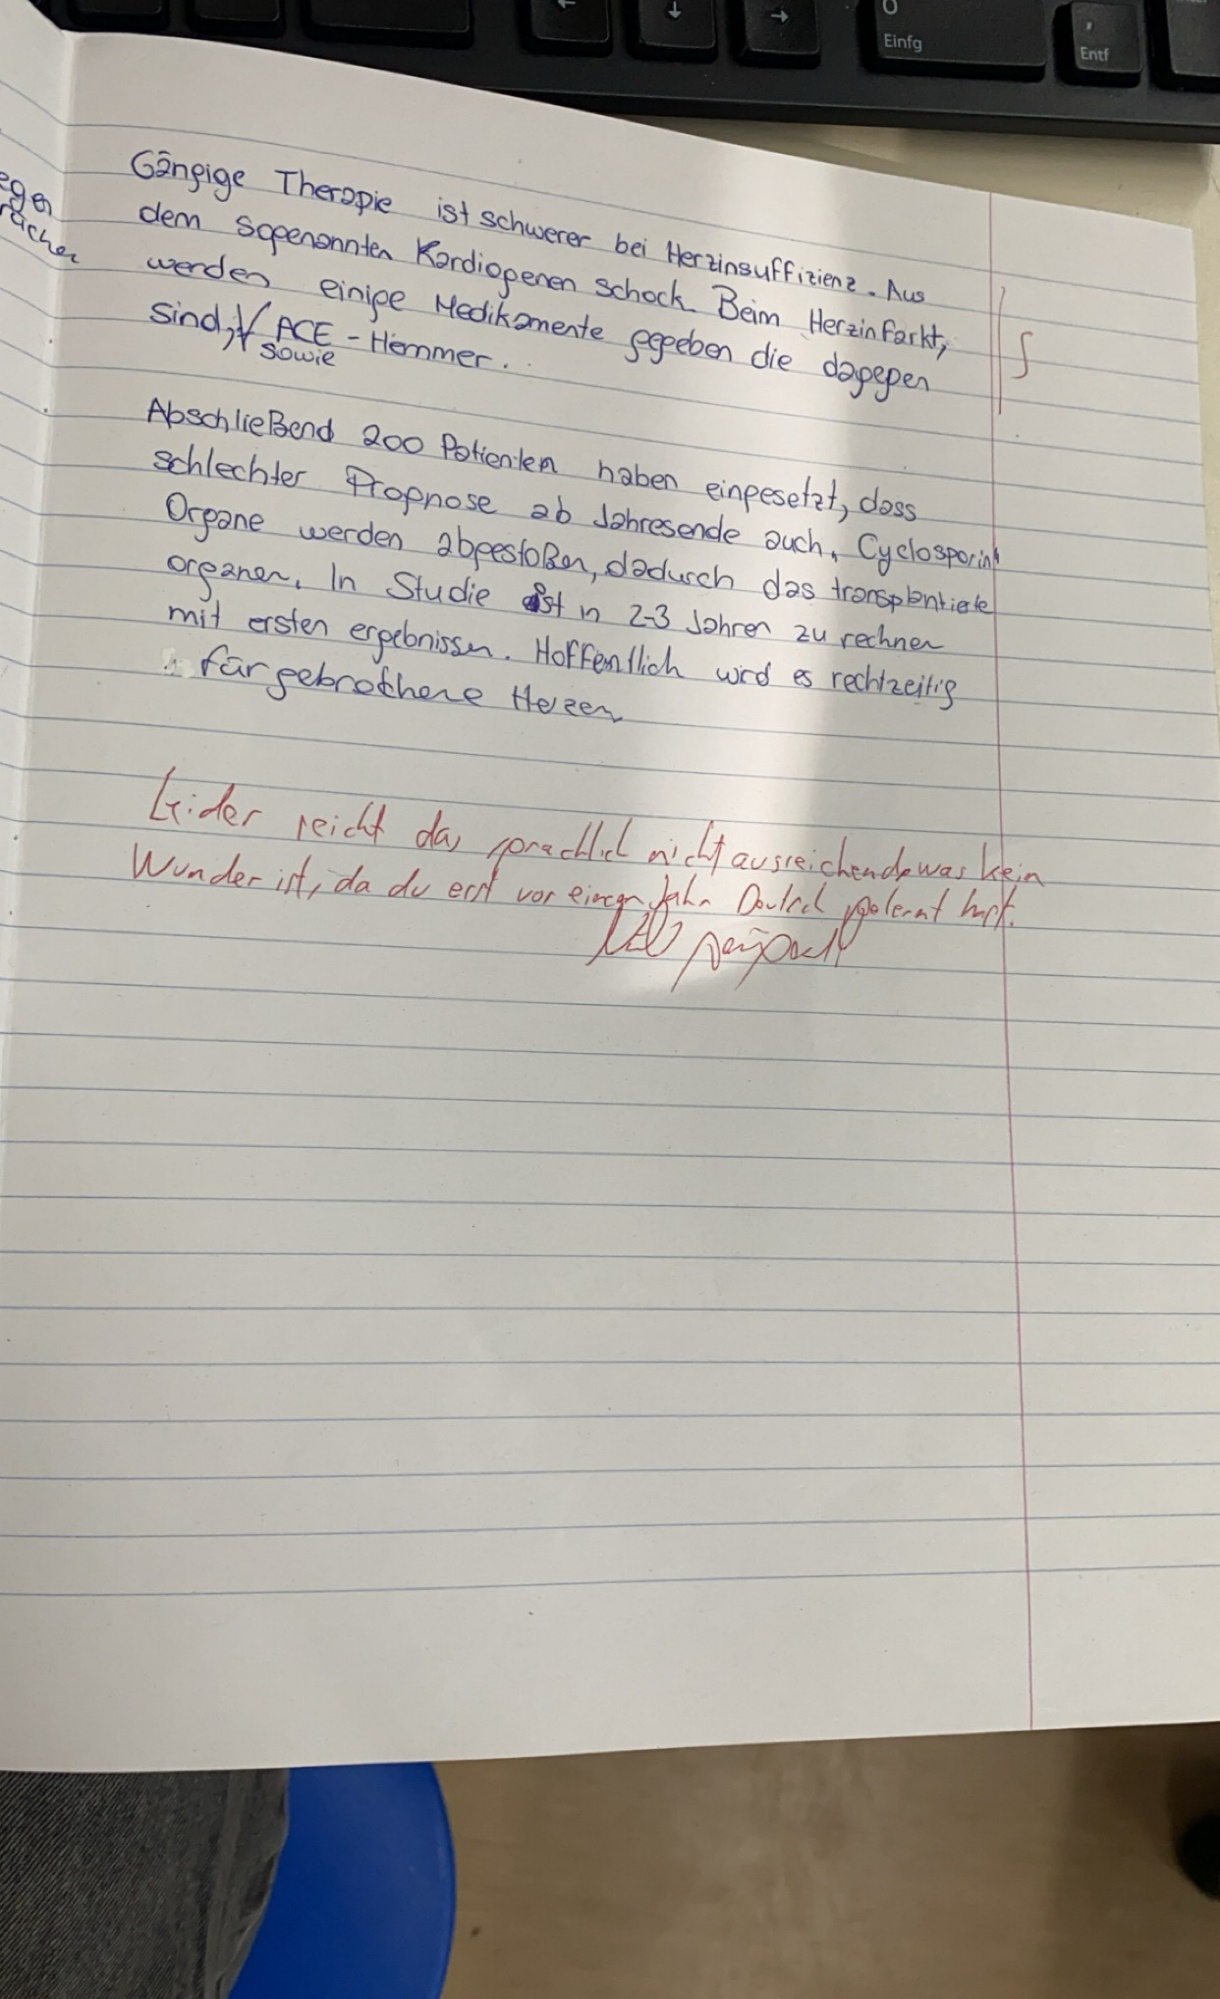 Einfg
Entf
egen
rächer
Gängige Therapie ist schwerer bei Herzinsuffizienz. Aus
dem sogenannten Kardiogenen schock. Beim Herzinfarkt,
werden einige Medikamente gegeben die dagegen
sind, √ ACE - Hemmer.
sowie
Abschließend 200 Patienten haben eingesetzt, dass
schlechter Prognose ab Jahresende auch, Cyclosporin
Organe werden abgestoßen, dadurch das transplantierte
organen. In Studie ist n 2-3 Jahren zu rechnen
mit ersten ergebnissen. Hoffentlich wird es rechtzeitig
für gebrochene Herzen
Leider reicht das sprachlich nicht ausreichend, was kein
Wunder ist, da du erst vor einem Jahr Deutsch gelernt hast.